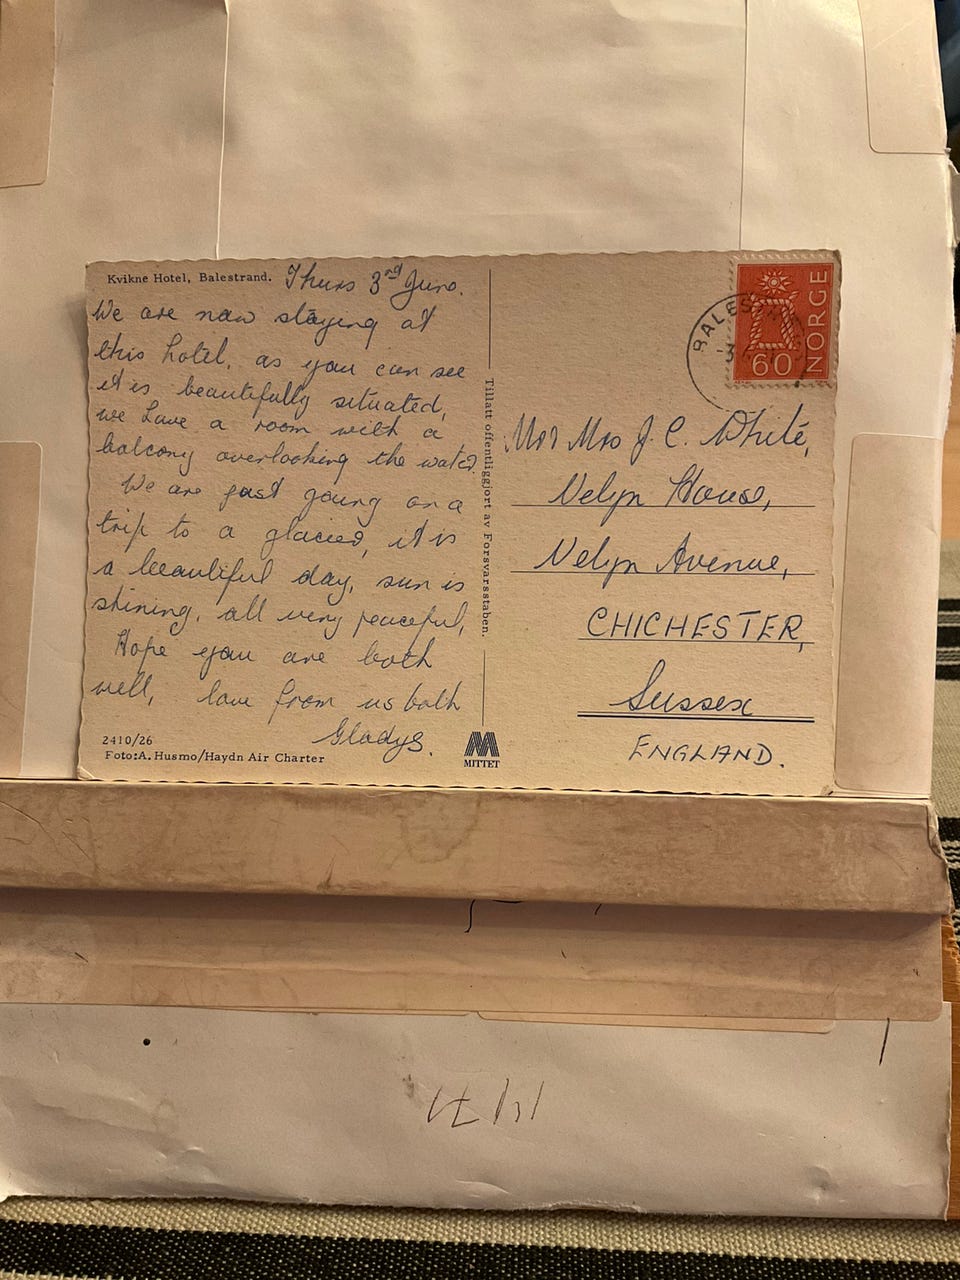 Kvikne Hotel, Balestrand.
Thurs 3rd June.
We are now staying at
this hotel, as you can see
it is beautifully situated,
we have a room with a
balcony overlooking the water.
We are just going on a
trip to a glacier, it is
a beautiful day, sun is
shining, all very peaceful,
Hope you are both
well, love from us both
Gladys.
2410/26
Foto:A. Husmo/Haydn Air Charter
Tillatt offentliggjort av Forsvarsstaben.
MITTET
BALES
-3
60
NORGE
Mr Mrs J. C. White,
Velyn House,
Velyn Avenue,
CHICHESTER,
Sussex
ENGLAND.